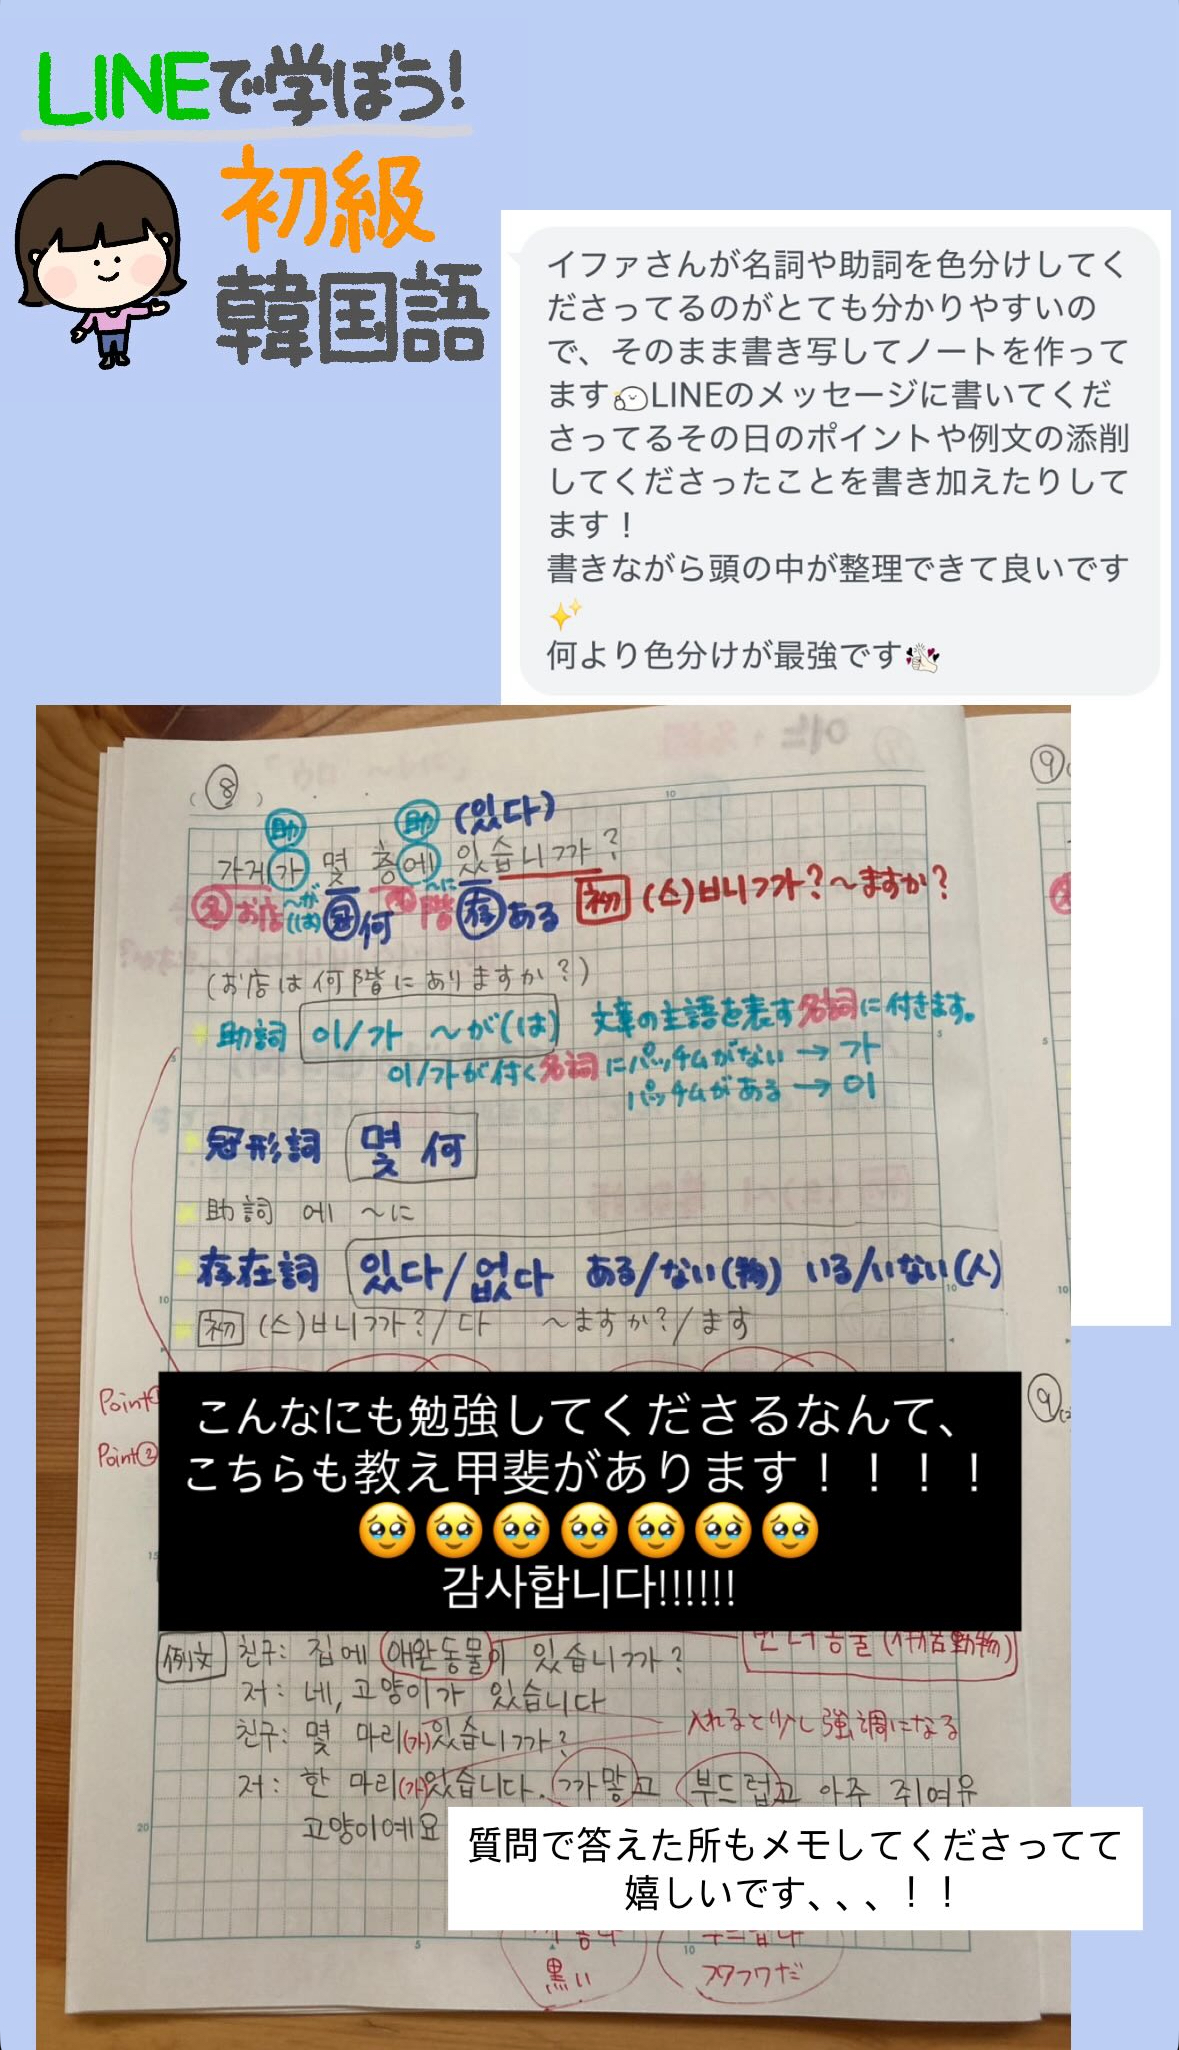 LINEで学ぼう!
初級
韓国語
イファさんが名詞や助詞を色分けしてく
ださってるのがとても分かりやすいの
で、そのまま書き写してノートを作って
ます LINEのメッセージに書いてくだ
さってるその日のポイントや例文の添削
してくださったことを書き加えたりして
ます！
書きながら頭の中が整理できて良いです
✨
何より色分けが最強です
8
助 助 (있다)
가게가 몇 층에 있습니까?
名 お店 ~が(は) 冠 何 名 階 ~に 存 ある 初 (스)ㅂ니까? ~ますか?
(お店は何階にありますか?)
助詞 이/가 ~が(は) 文章の主語を表す名詞に付きます。
이/가が付く名詞にパッチムがない → 가
パッチムがある → 이
冠形詞 몇 何
助詞 에 ~に
存在詞 있다/없다 ある/ない(物) いる/いない(人)
初 (스)ㅂ니까?/다 ~ますか?/ます
Point
Point②
こんなにも勉強してくださるなんて、
こちらも教え甲斐があります！！！！
🥹🥹🥹🥹🥹🥹🥹
감사합니다!!!!!!
例文 친구: 집에 애완동물이 있습니까?
저: 네, 고양이가 있습니다
친구: 몇 마리(가)있습니까?
入れると少し強調になる
저: 한 마리(가)있습니다. 까맣고 부드럽고 아주 귀여운
고양이예요
質問で答えた所もメモしてくださってて
嬉しいです、、、！！
黒い
フワフワだ
9
9